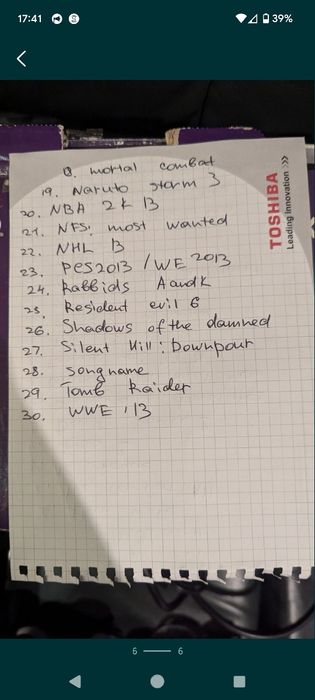 17:41
39%
18. mortal combat
19. Naruto storm 3
20. NBA 2k 13
21. NFS: most wanted
22. NHL 13
23. PES2013 / WE 2013
24. Rabbids AandK
25. Resident evil 6
26. Shadows of the damned
27. Silent Hill: Downpour
28. songname
29. Tomb Raider
30. WWE '13
TOSHIBA
Leading Innovation >>>
6 6